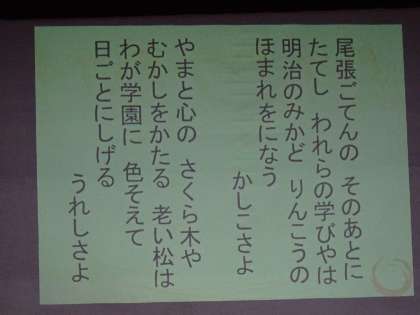 尾張ごてんの そのあとに
たてし われらの学びやは
明治のみかど りんこうの
ほまれをになう
かしこさよ
やまと心の さくら木や
むかしをかたる 老い松は
わが学園に 色そえて
日ごとにしげる
うれしさよ